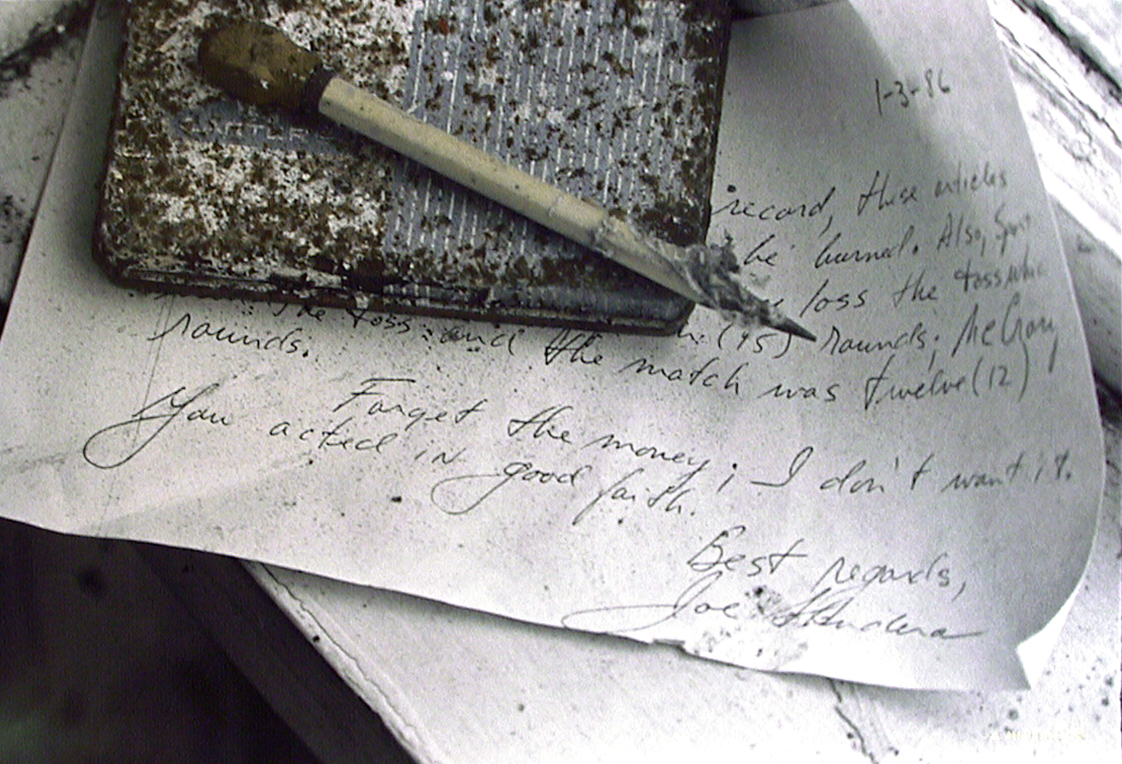 1-3-86
record, these articles
be burned. Also,
loss the toss
the toss and the match (45) rounds; McCrory
rounds. was twelve (12)
Forget the money; I don't want it.
You acted in good faith.
Best regards,
Joe